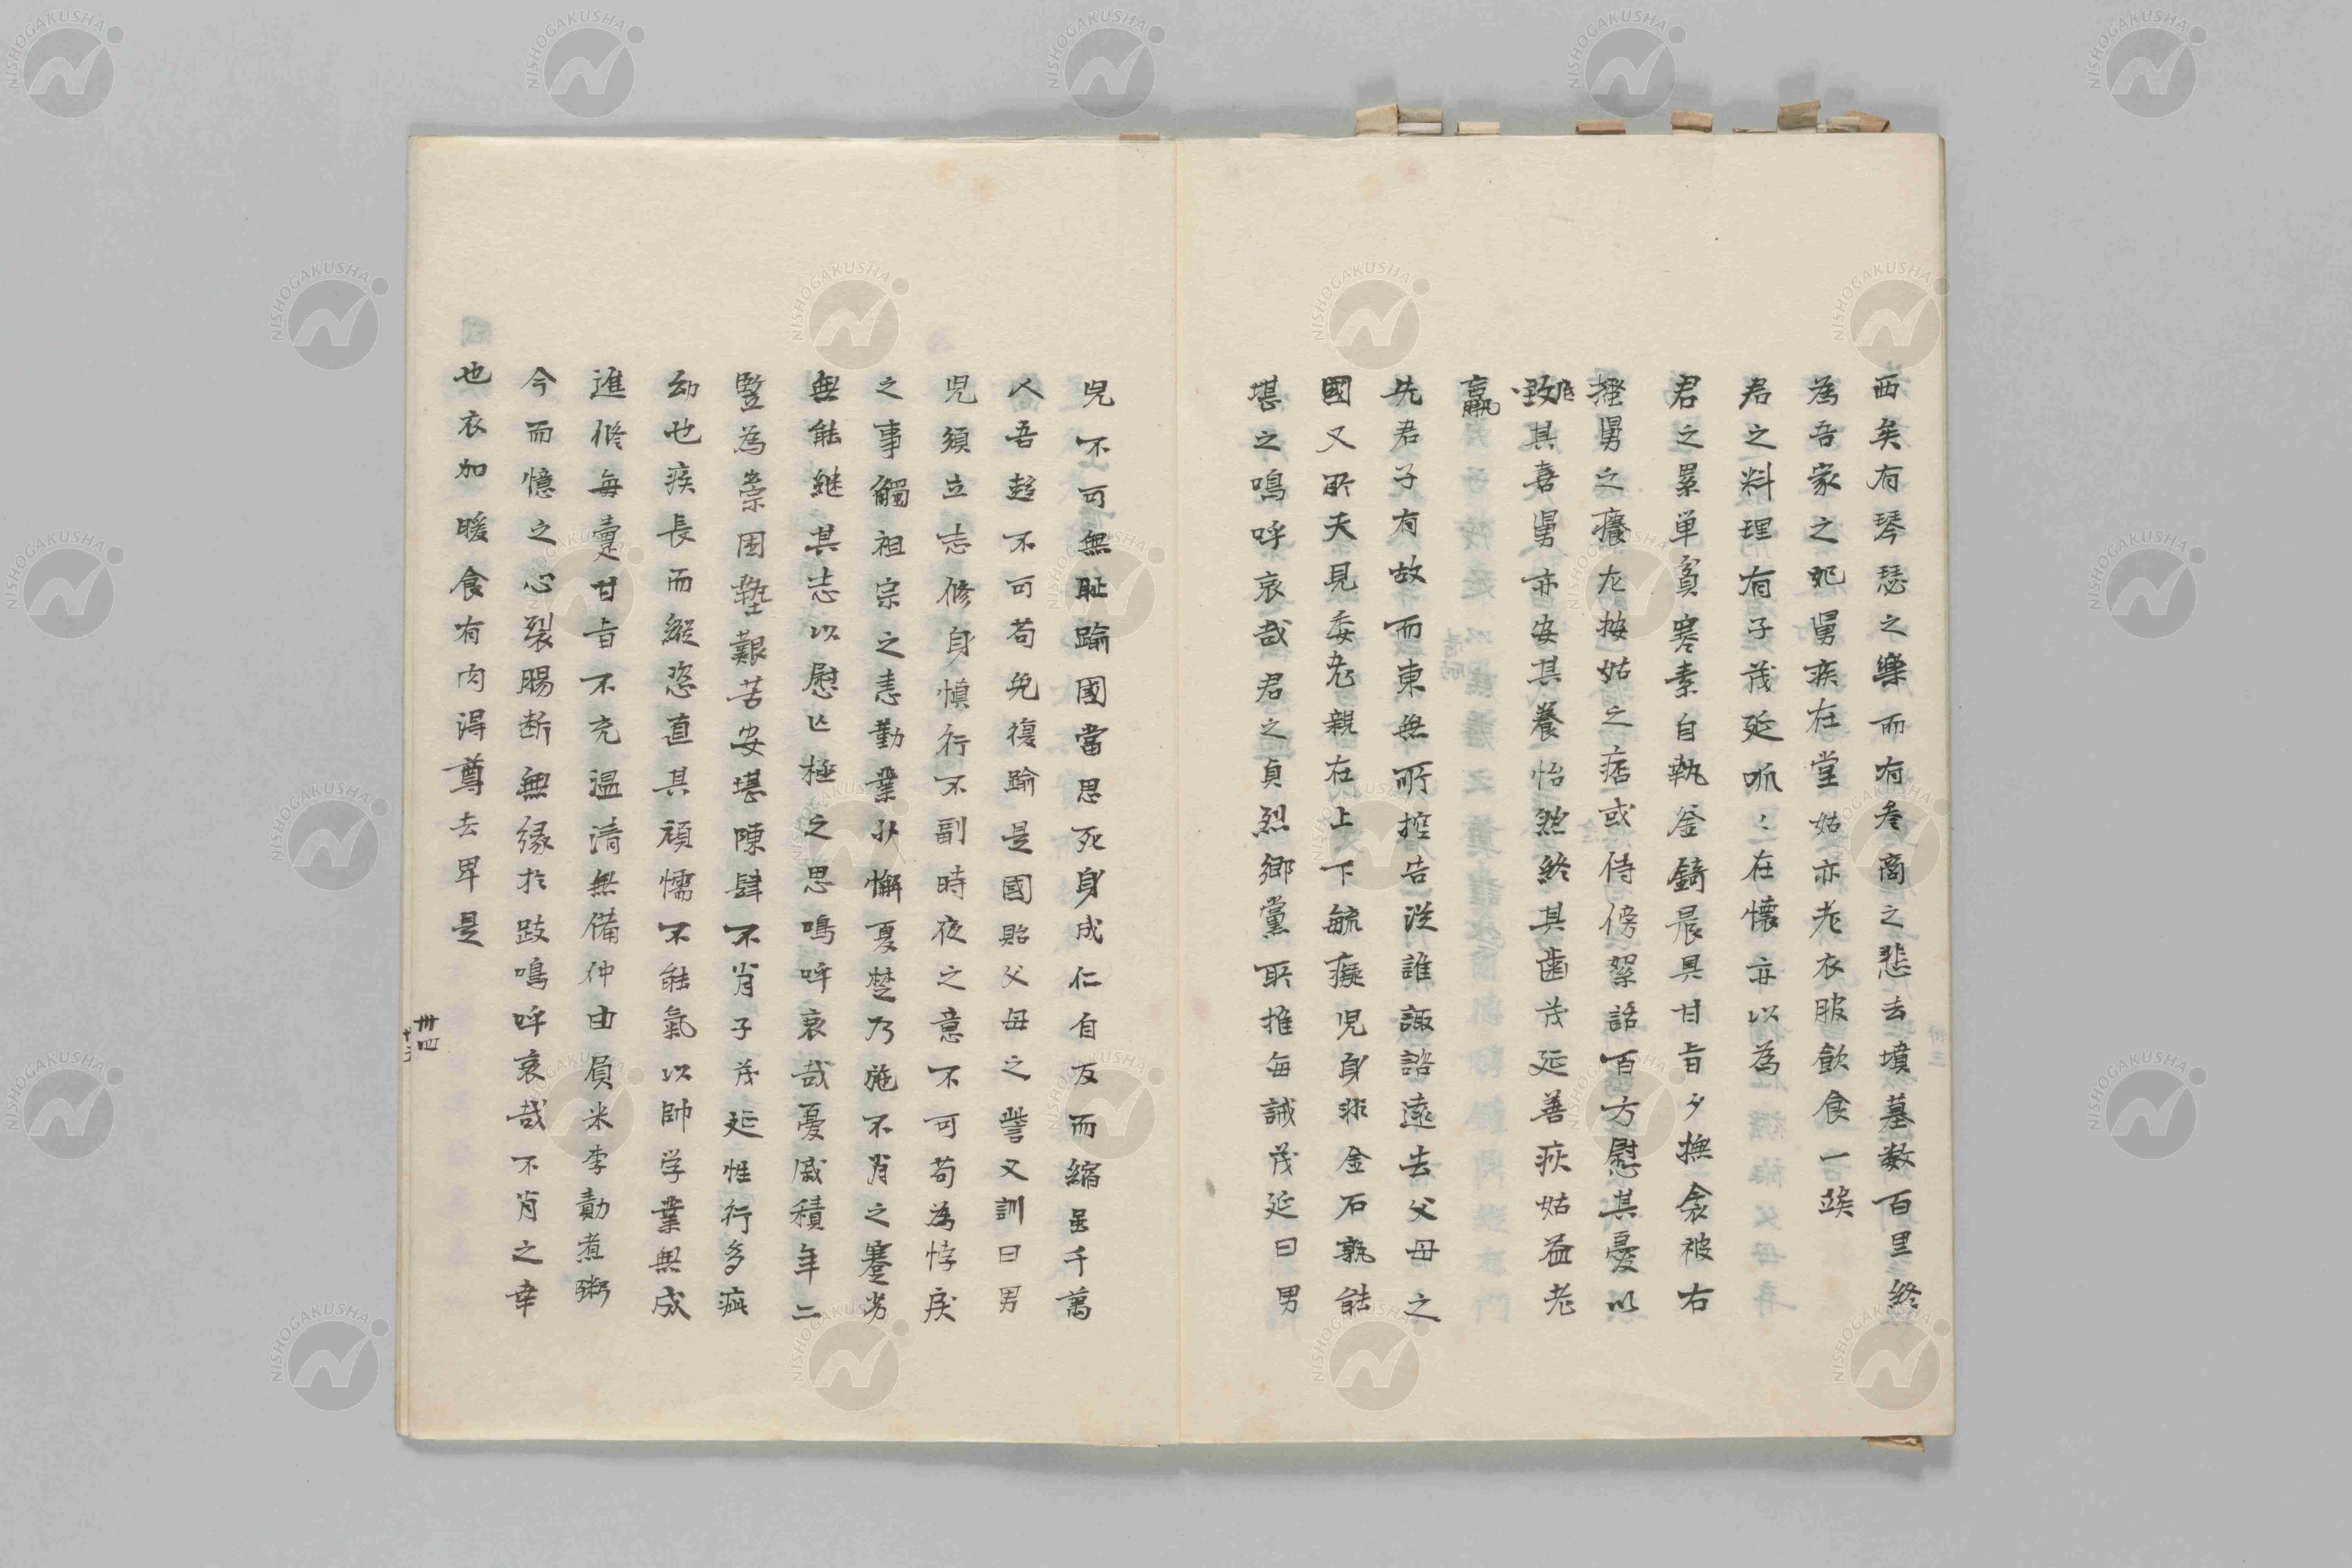 西矣有琴瑟之樂而有参商之悲去墳墓数百里終
為吾家之妃舅疾在堂姑亦老衣服飲食一莢
君之料理有子茂延呱〻在懷亦以為
君之累単貧寒素自執釜錡晨具甘旨夕撫衾被右
搔舅之癢左按姑之痞或侍傍絮話百方慰其憂以
致其喜舅亦安其養怡然終其歯茂延善疾姑益老
羸
先君子有故而東無所控告従誰諏諮遠去父母之
國又所天見委老親在上下毓癡児身非金石孰能
堪之嗚呼哀哉君之貞烈郷黨取推毎誡茂延曰男
児不可無耻踰國當思死身成仁自反而縮虽千萬
人吾趍不可苟免復踰是國貽父母之詈又訓曰男
児須立志修身慎行不副時夜之意不可苟為悖戻
之事觸祖宗之恚勤業少懈夏楚乃施不肖之蹇劣
無能継其志以慰亡極之思嗚呼哀哉憂戚積年二
豎為祟困塾艱苦安堪陳肆不肖子茂延性行多疵
幼也疾長而縦恣直其頑懦不能氣以帥学業無成
進修毎躓甘旨不充温凊無備仲由負米李勣煮粥
今而憶之心裂腸断無縁於跂嗚呼哀哉不肖之幸
也衣加暖食有肉得尊去卑是
卅四